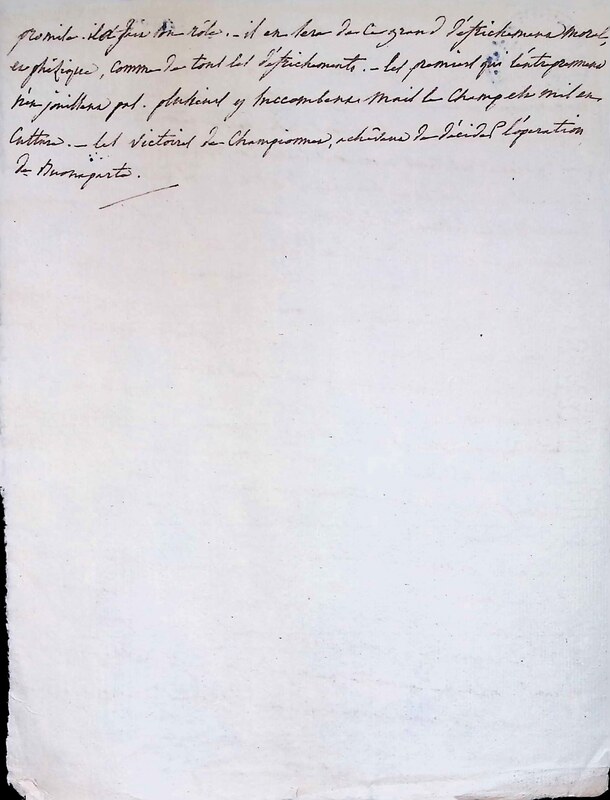 promise. il a fini son rôle. - il en sera de ce grand défrichement moral,
et phisique, comme de tous les défrichements. - les premiers qui l'entreprennent
n'en jouissent pas. plusieurs y succombent. mais le champ est mis en
culture. - les victoires de Championnet, achèvent de décider l'opération
de Buonaparte.